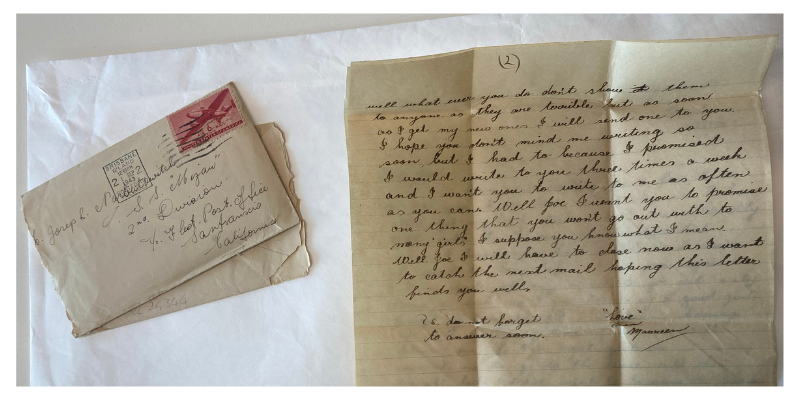 BRISBANE
2
2
1943
Joseph L.
S.S. "Mozaw"
2nd. Division
℅ Fleet Post. Office
Sanfrancis
California
(2)
well what ever you do don't show them
to anyone as they are terrible but as soon
as I get my new ones I will send one to you.
I hope you don't mind me writing so
soon but I had to because I promised
I would write to you three times a week
and I want you to write to me as often
as you can. Well Joe I want you to promise
one thing that you won't go out with to
many girls I suppose you know what I mean.
Well Joe I will have to close now as I want
to catch the next mail hoping this letter
finds you well.
do not forget
to answer soon.
"Love"
Maureen